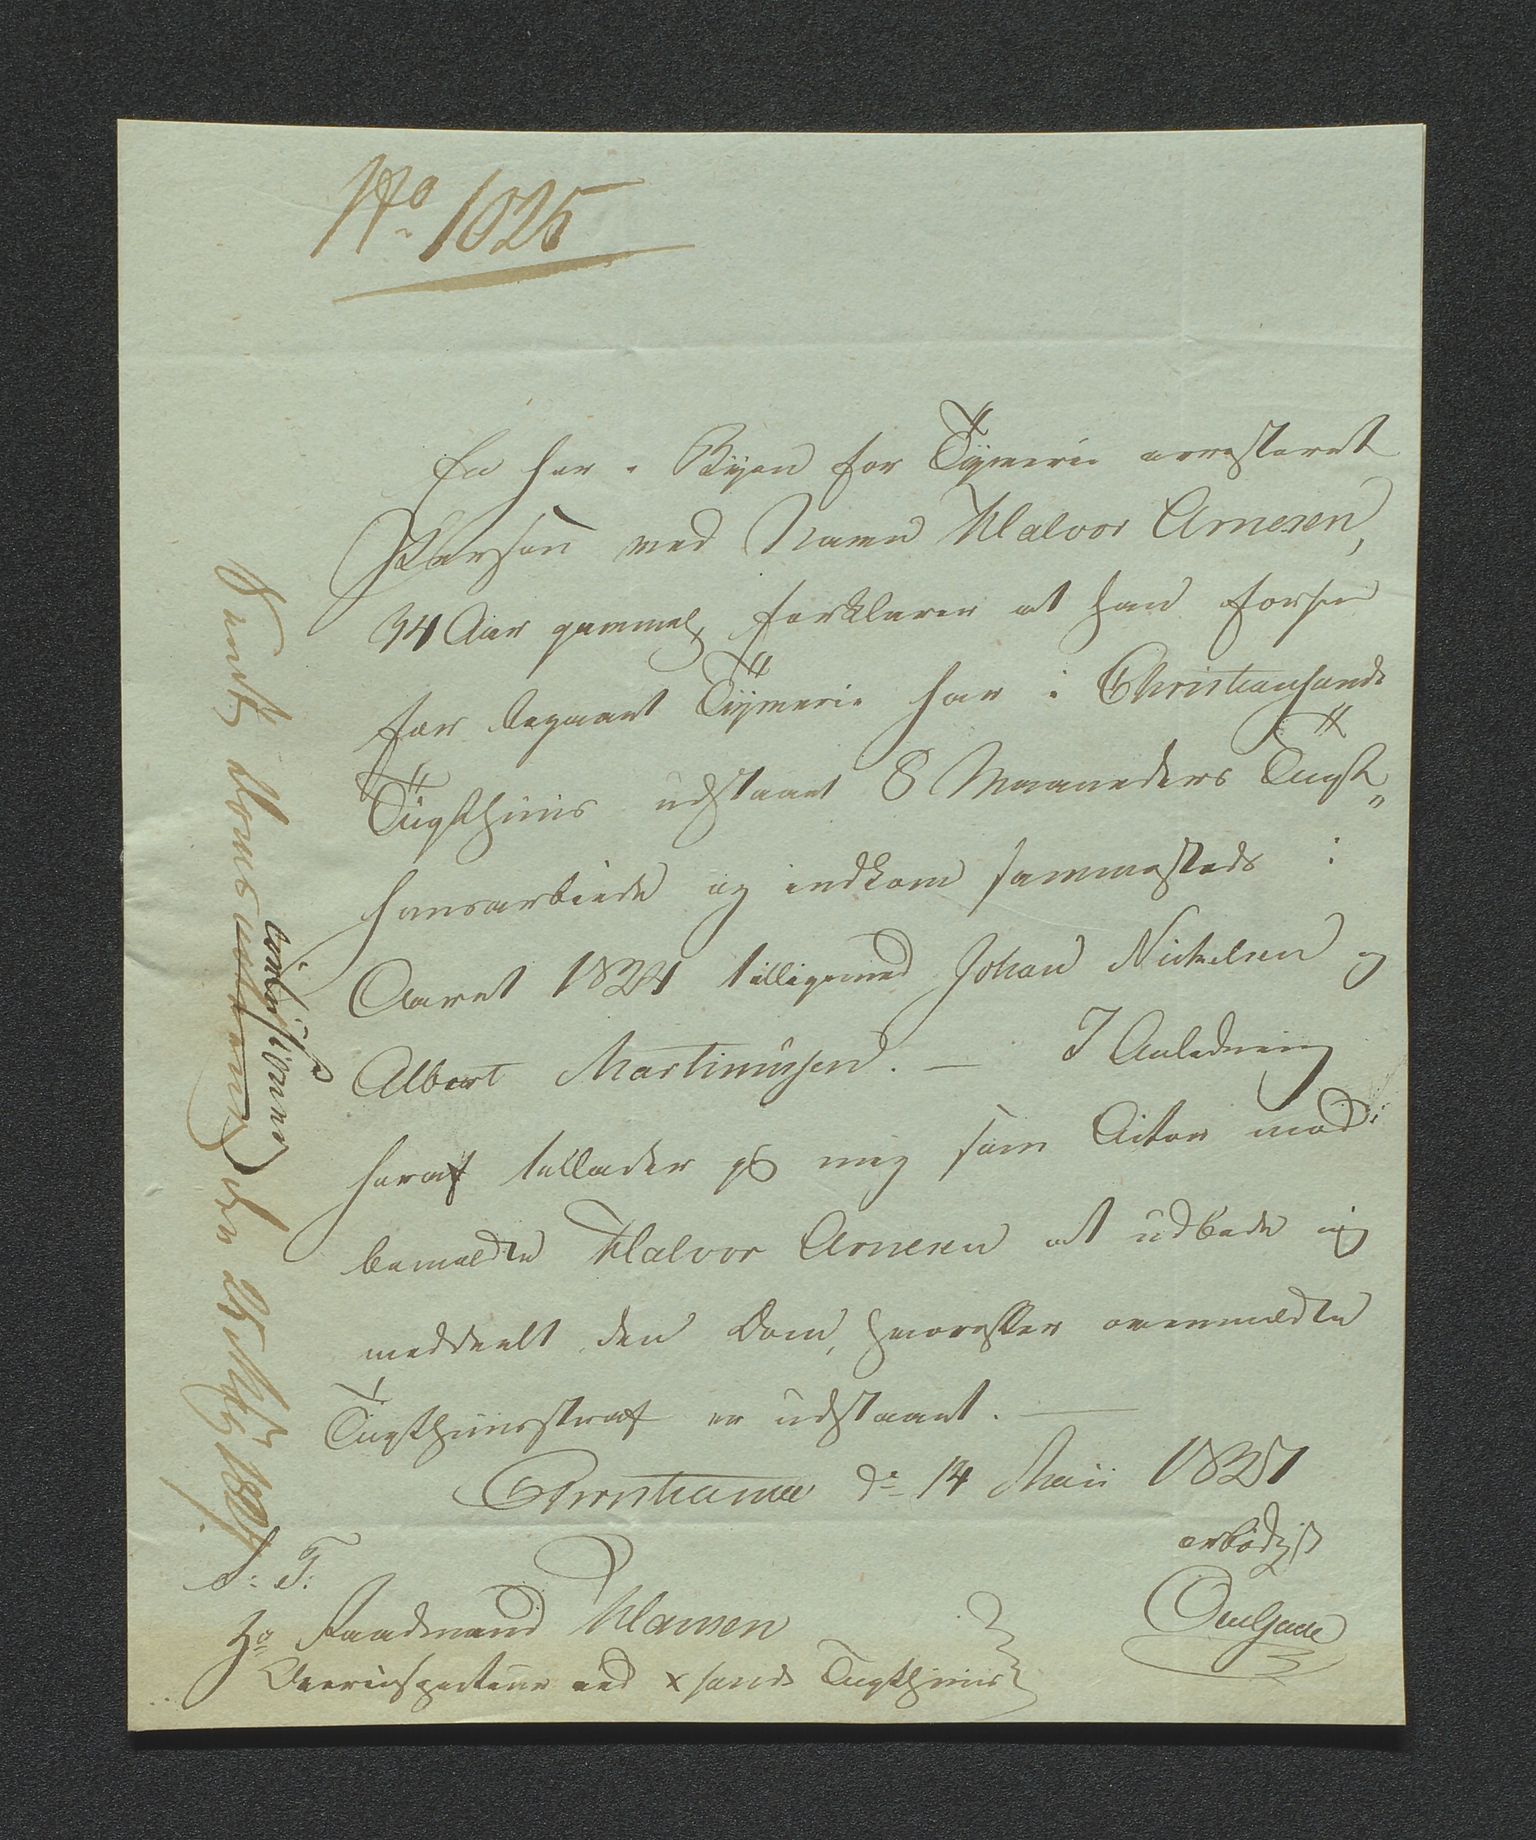 No 1025
En her i Byen for Tyverie arresteret
Person med Navn Halvor Arnesen,
34 Aar gammel, forklarer at han forhen
for begaaet Tyverie har i Christiansands
Tugthuus udstaaet 8 Maaneders Tugt„
huusarbeide og indkom sammesteds i
Aaret 1824 tilligemed Johan Nickelsen og
Albert Martinussen. — I Anledning
heraf tillader jeg mig som Actor mod
bemeldte Halvor Arnesen at udbede mig
meddeelt den Dom, hvorefter ovenmeldte
Tugthuusstraf er udstaaet. —
Christiania d. 14 Maii 1827
ærbødigst
S: T:
Hr Raadmand Clausen
Overinspecteur ved Xsands Tugthuus
Sendt Doms den 25 Maj 1827.